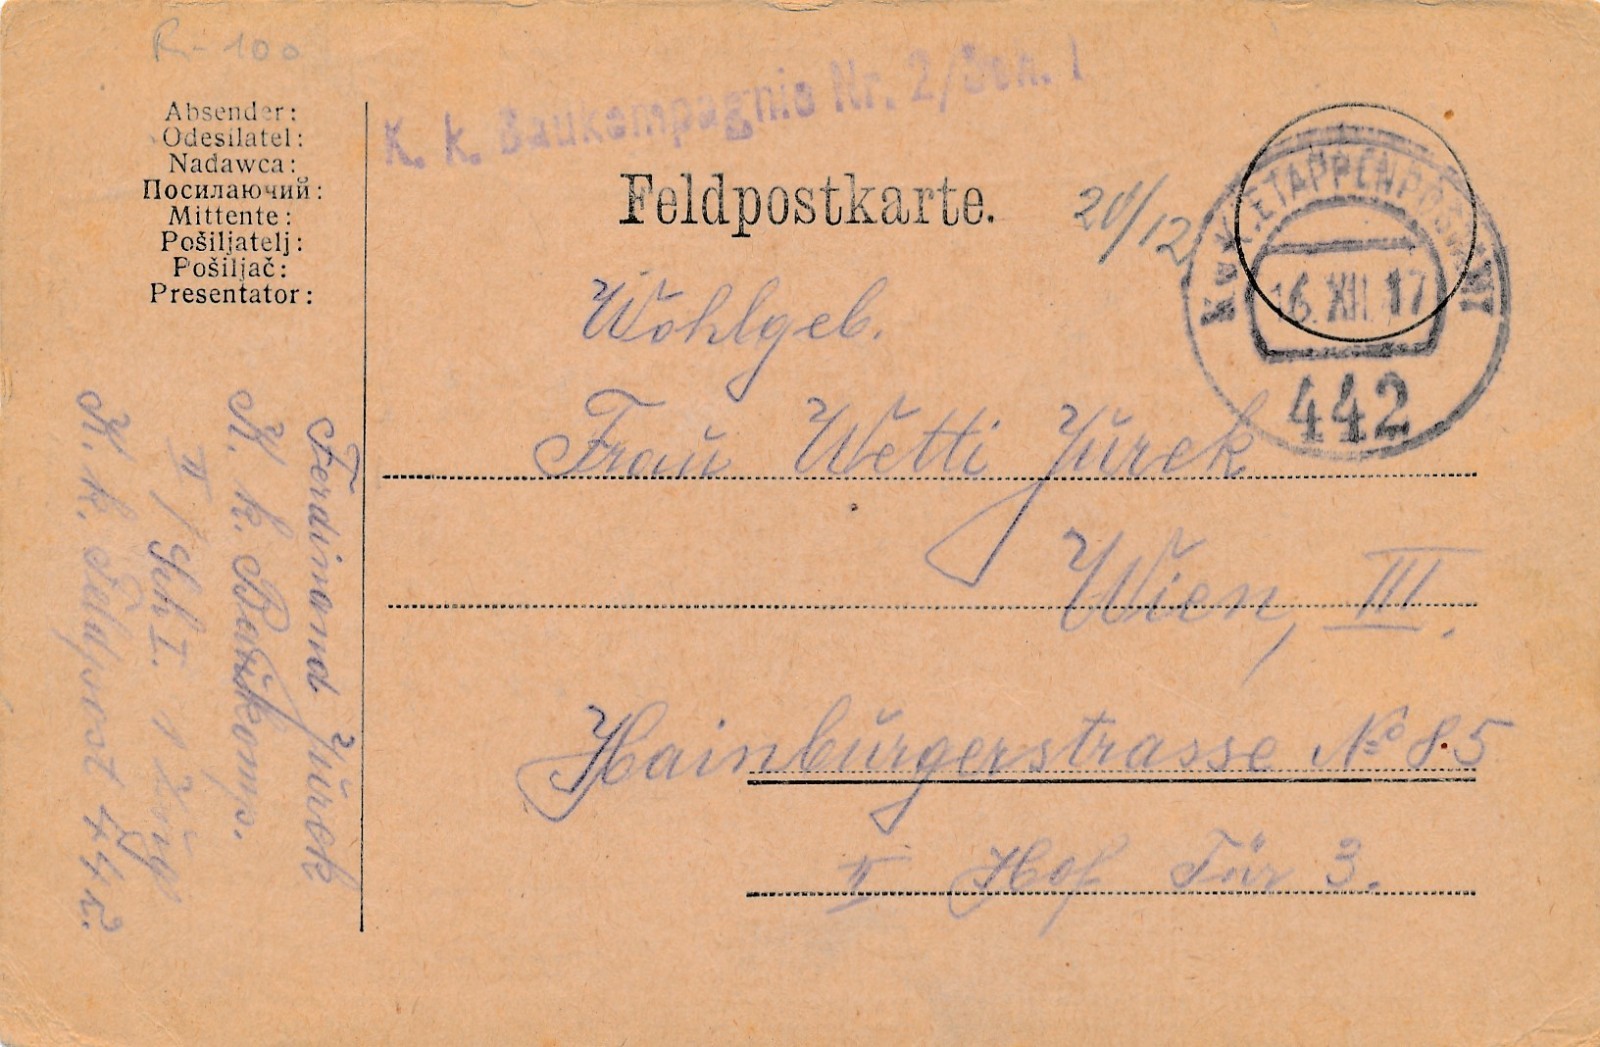 R-100
K. k. Baukompagnie Nr. 2/Sch. I
Absender:
Odesílatel:
Nadawca:
Посилаючий:
Mittente:
Pošiljatelj:
Pošiljač:
Presentator:
Feldpostkarte.
20/12
K.u.K. ETAPPENPOSTAMT
16. XII. 17
442
Wohlgeb.
Frau Wetti Jurek
Wien, III.
Hainburgerstrasse No 85
II Hof Tür 3.
Ferdinand Jurek
K. k. Baukomp.
II / Sch I. 1 Zug
K. k. Feldpost 442.